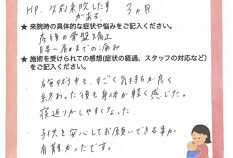 HP. 以前来院した事がある 3ヵ月
★ 来院時の具体的な症状や悩みをご記入ください。
産後の骨盤矯正
首〜肩までの痛み
★ 施術を受けられての感想(症状の経過、スタッフの対応など)をご記入ください。
施術中も、すごく気持ちが良く
終わった後も身体が軽く感じた。
寝返りがしやすくなった
子供を安心してお願いできる事が
有難かったです。